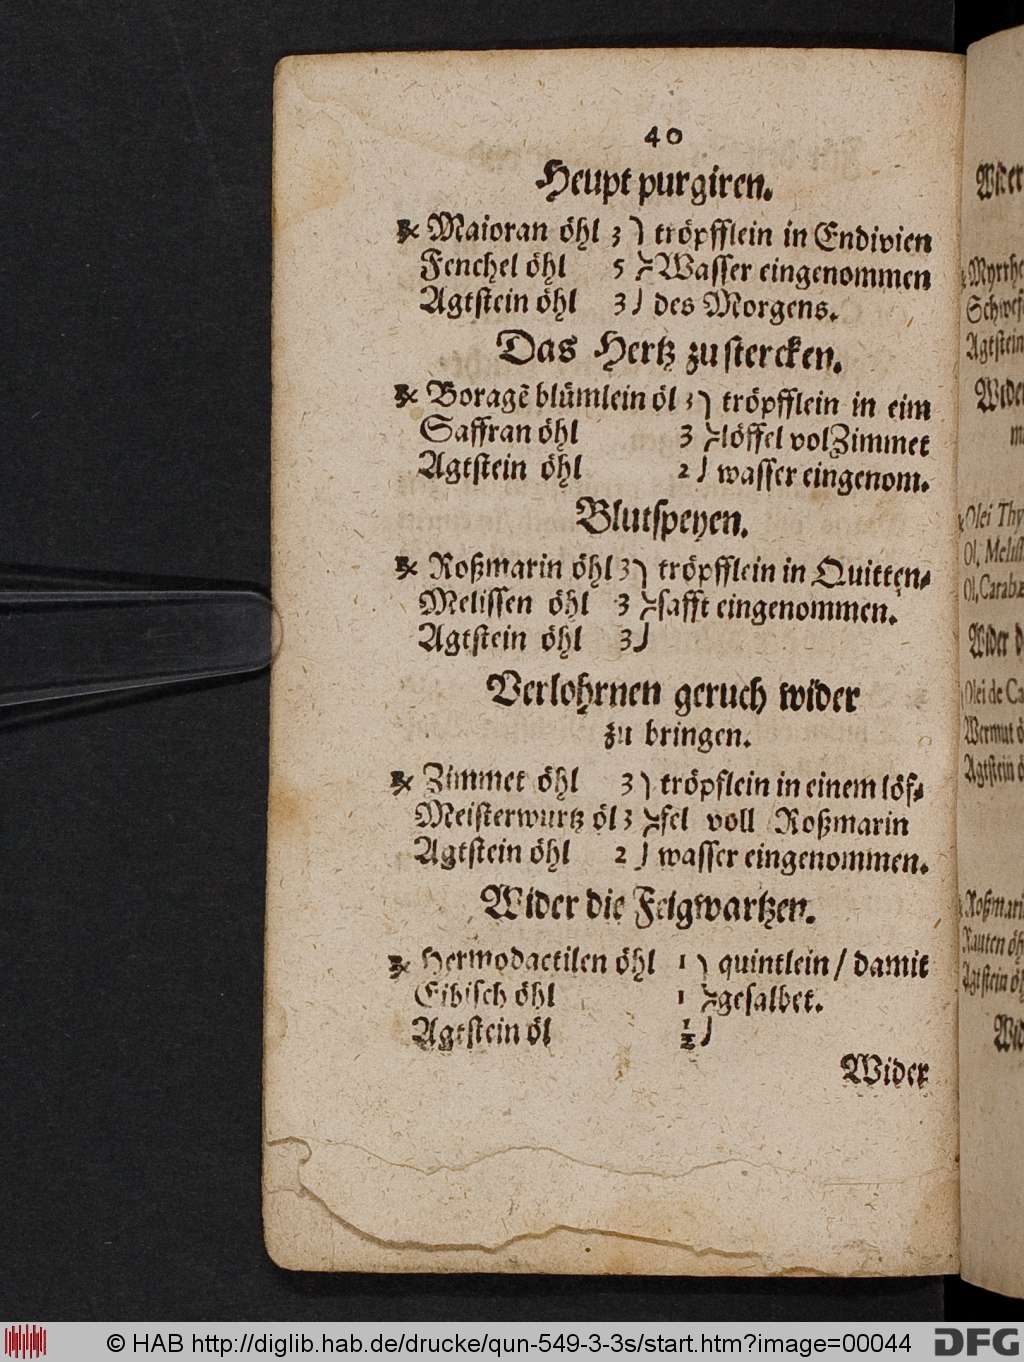 40
Heupt purgiren.
℞ Maioran öhl 3) tröpfflein in Endivien
Fenchel öhl 5 }Wasser eingenommen
Agtstein öhl 3) des Morgens.
Das Hertz zu stercken.
℞ Boragẽ blümlein öl 3) tröpfflein in eim
Saffran öhl 3 }löffel vol Zimmet
Agtstein öhl 2) wasser eingenom.
Blutspeyen.
℞ Roßmarin öhl 3) tröpfflein in Quitten-
Melissen öhl 3 }safft eingenommen.
Agtstein öhl 3)
Verlohrnen geruch wider
zu bringen.
℞ Zimmet öhl 3) tröpflein in einem löf-
Meisterwurtz öl 3 }fel voll Roßmarin
Agtstein öhl 2) wasser eingenommen.
Wider die Feigwartzen.
℞ Hermodactilen öhl 1) quintlein / damit
Eibisch öhl 1 }gesalbet.
Agtstein öl ½)
Wider
Myrrhe
Schwef
Agtstein
Olei Thy
Ol. Meliss
Ol. Carabæ
Wider d
Olei de Ca
Wermut ö
Agtstein ö
Roßmari
Rauten öh
Agtstein öh
© HAB http://diglib.hab.de/drucke/qun-549-3-3s/start.htm?image=00044
DFG